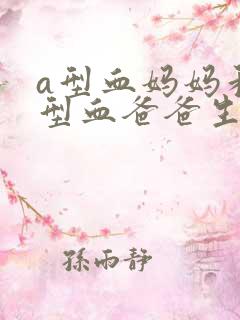 a型血妈妈
型血爸爸生
孫雨静